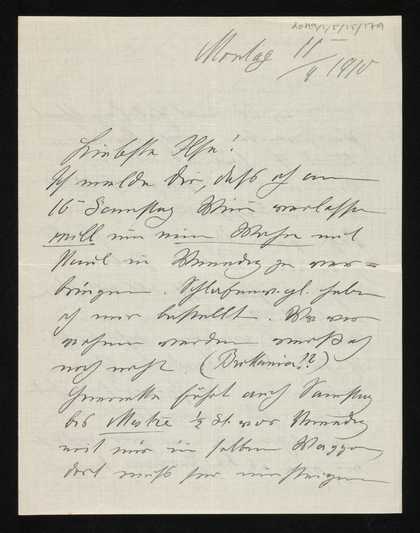 Montag 11
/4 1910
Liebste Ilse!
Ich melde dir, daß ich am
16 Samstag Wien verlassen
will um eine Woche mit
Paul in Venedig zu ver=
bringen. Schlafenwgl. habe
ich mir bestellt. Wo wir
wohnen werden weiß ich
noch nicht (Brittania??)
Henriette fährt auch Samstag
bis Mestre ½ St. vor Venedig
mit mir im selben Waggon
dort muß sie umsteigen